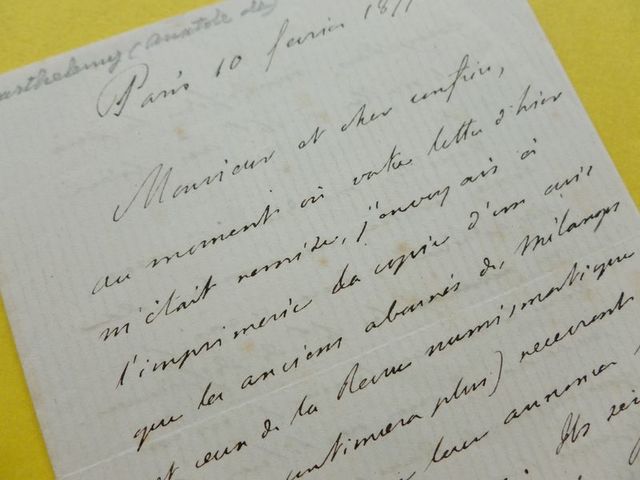 arthelemy (Anatole de)
Paris 10 fevrier 187
Monsieur et cher confrère,
au moment où votre lettre d'hier
m'était remise, j'envoyais à
l'imprimerie la copie d'un avis
que les anciens abonnés des Mélanges
et ceux de la Revue numismatique
continuera plus) recevront
leur annoncer
Ils